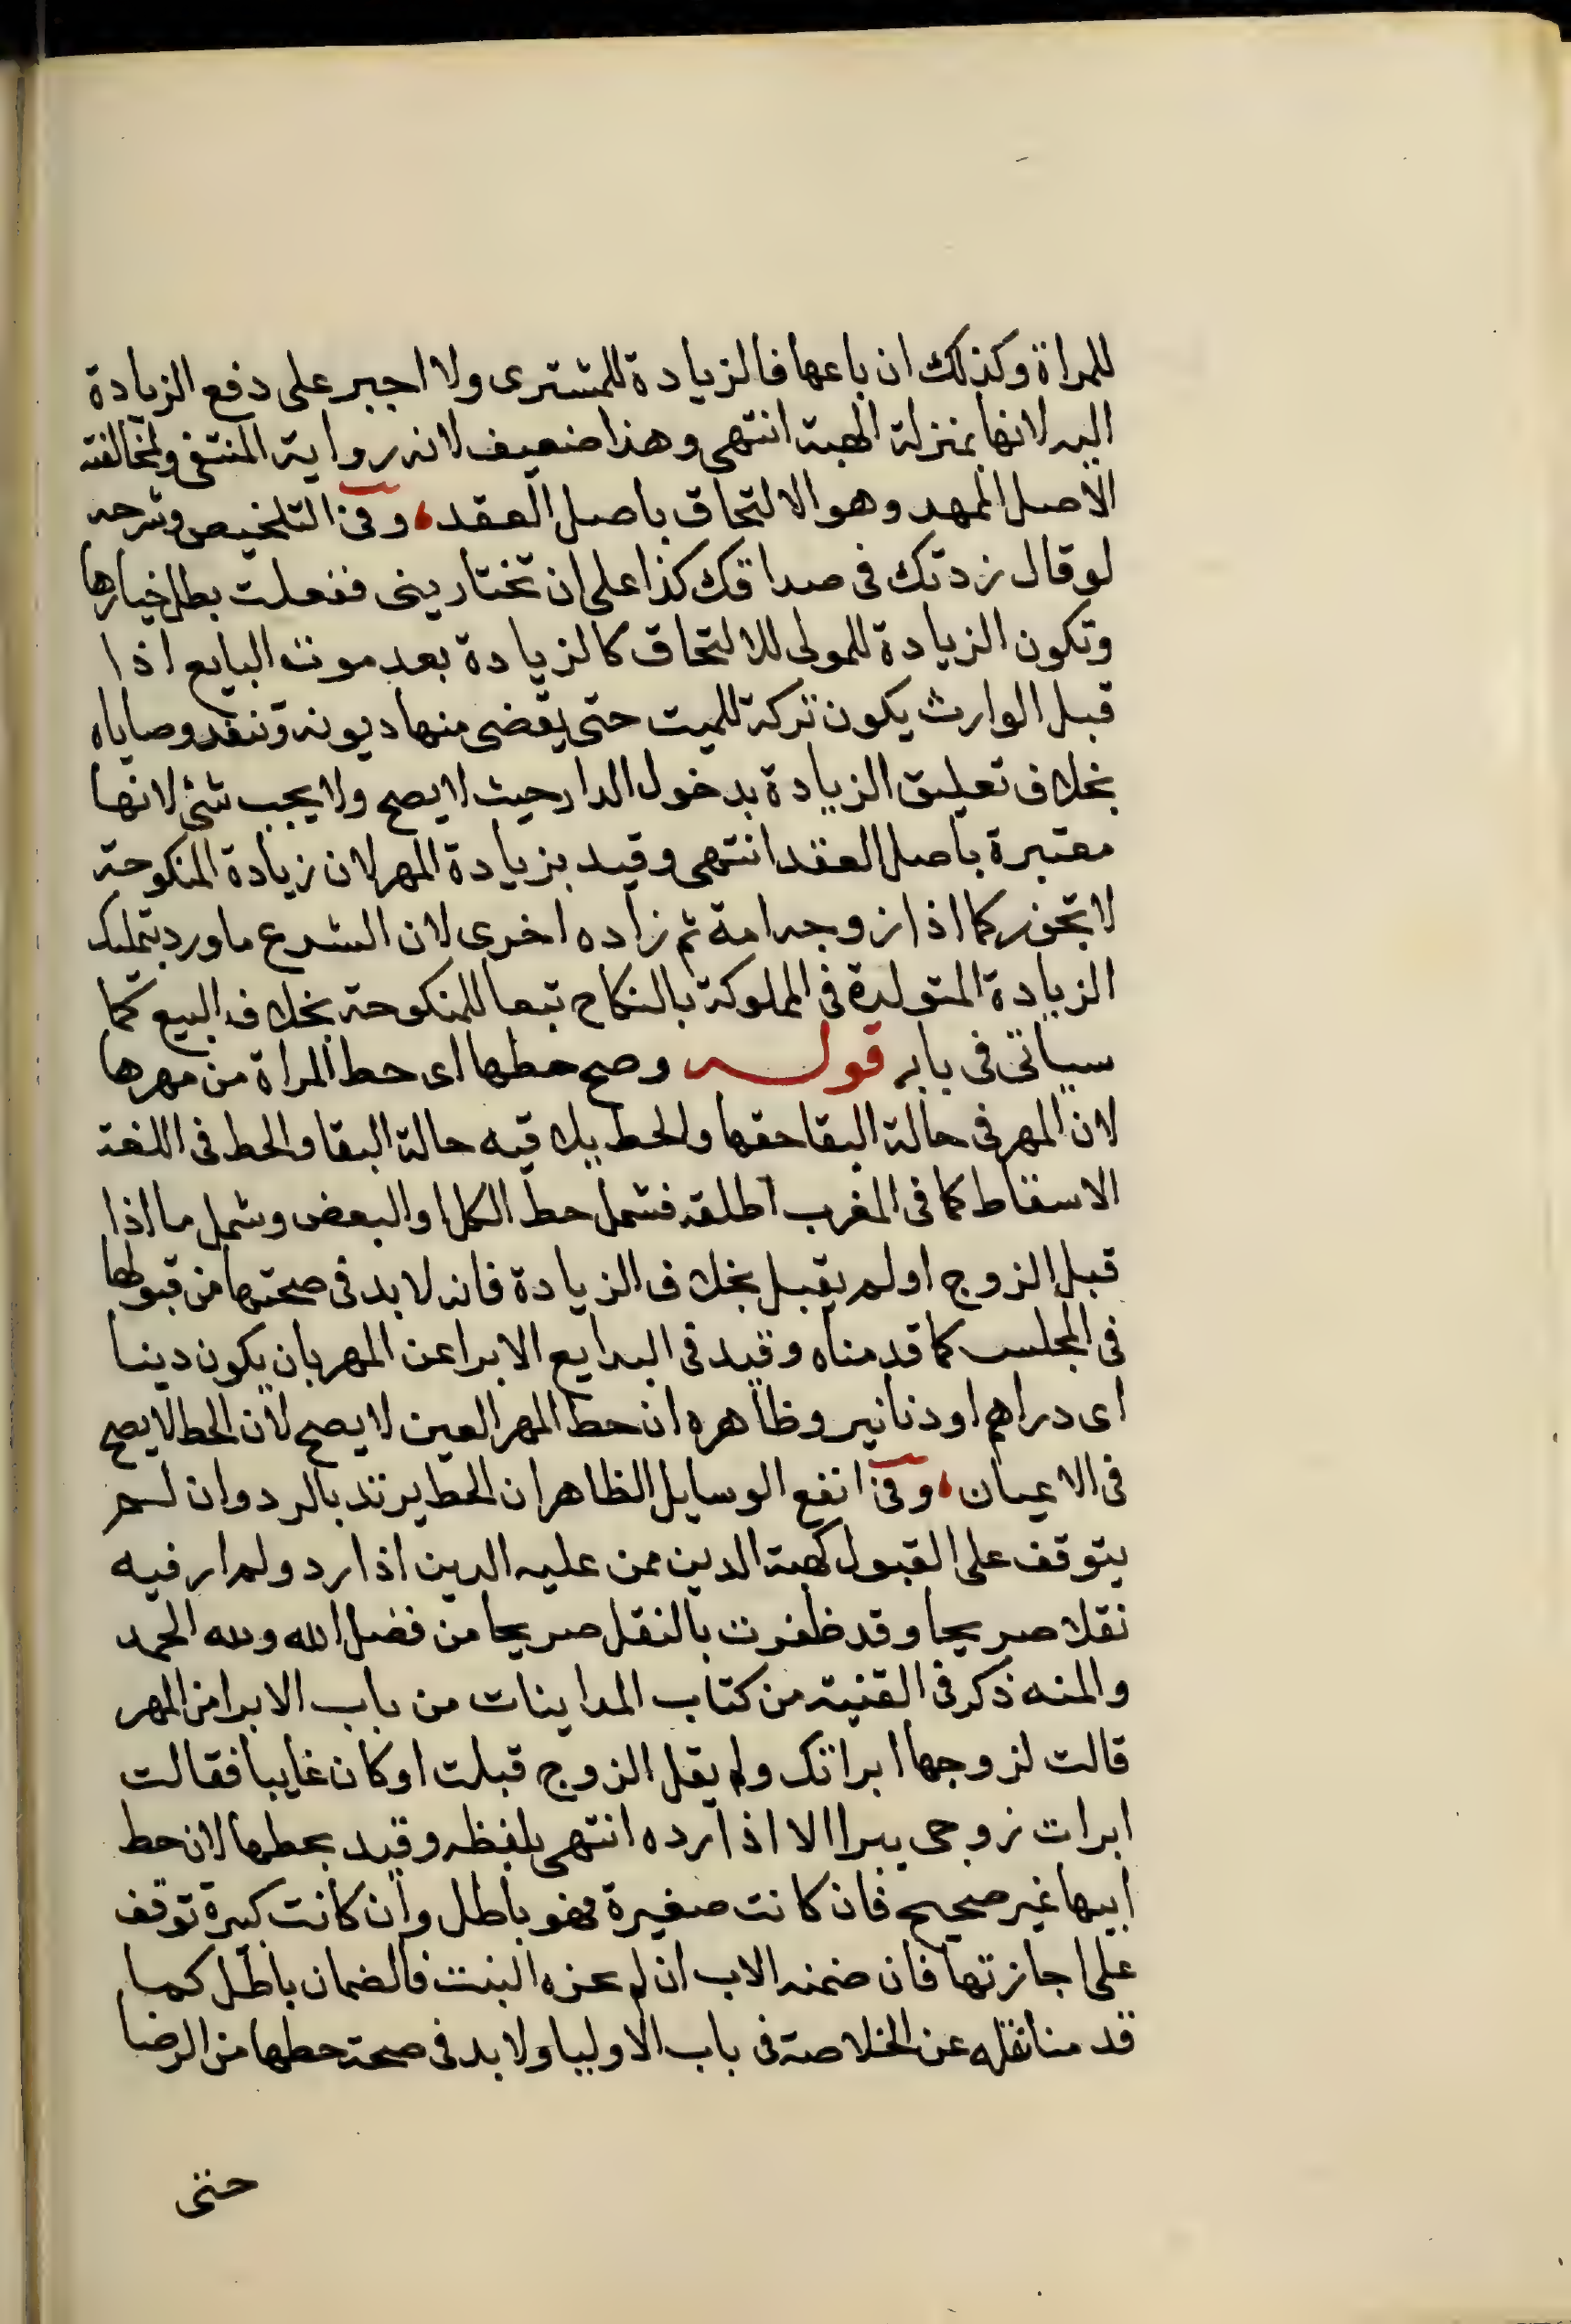 للمراة وكذلك ان باعها فالزيادة للمشترى ولا اجبر على دفع الزيادة
اليه لانها بمنزلة الهبة انتهى وهذا ضعيف لانه رواية المنتقى ولمخالفته
الاصل الممهد وهو الالتحاق باصل العقد، وفى التلخيص وشرحه
لو قال زدتك فى صداقك كذا على ان تختارينى ففعلت بطل خيارها
وتكون الزيادة للمولى للالتحاق كالزيادة بعد موت البايع اذا
قبل الوارث يكون تركة للميت حتى يقضى منها ديونه وتنفذ وصاياه
بخلاف تعليق الزيادة بدخول الدار حيث لا يصح ولا يجب شئ لانها
معتبرة باصل العقد انتهى وقيد بزيادة المهر لان زيادة المنكوحة
لا تجوز كما اذا زوجه امة ثم زاده اخرى لان الشرع ما ورد بتمليك
الزيادة المتولدة فى المملوكة بالنكاح تبعا للمنكوحة بخلاف البيع كما
سياتى فى بابه قوله وصح حطها اى حط المراة من مهرها
لان المهر فى حالة البقا حقها والحط يلاقيه حالة البقا والحط فى اللغة
الاسقاط كما فى المغرب اطلقه فشمل حط الكل او البعض وشمل ما اذا
قبل الزوج او لم يقبل بخلاف الزيادة فانه لا بد فى صحتها من قبولها
فى المجلس كما قدمناه وقيد فى البدايع الابرا عن المهر بان يكون دينا
اى دراهم او دنانير وظاهره ان حط المهر العين لا يصح لان الحط لا يصح
فى الاعيان، وفى انفع الوسايل الظاهر ان الحط يرتد بالرد وان لم
يتوقف على القبول كهبة الدين ممن عليه الدين اذا رد ولم ار فيه
نقلا صريحا وقد ظفرت بالنقل صريحا من فضل الله ولله الحمد
والمنه ذكر فى القنية من كتاب المداينات من باب الابرا من المهر
قالت لزوجها ابراتك ولم يقل الزوج قبلت او كان غايبا فقالت
ابرات زوجى يبرا الا اذا رده انتهى بلفظه وقيد بحطها لان حط
ابيها غير صحيح فان كانت صغيرة فهو باطل وان كانت كبيرة توقف
على اجازتها فان ضمنه الاب ان لم يجزه البنت فالضمان باطل كما
قدمنا نقله عن الخلاصة فى باب الاوليا ولا بد فى صحة حطها من الرضا
حتى